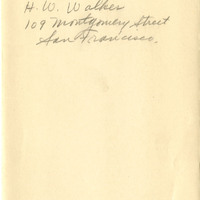 H. W. Walker
109 Montgomery Street
San Francisco.